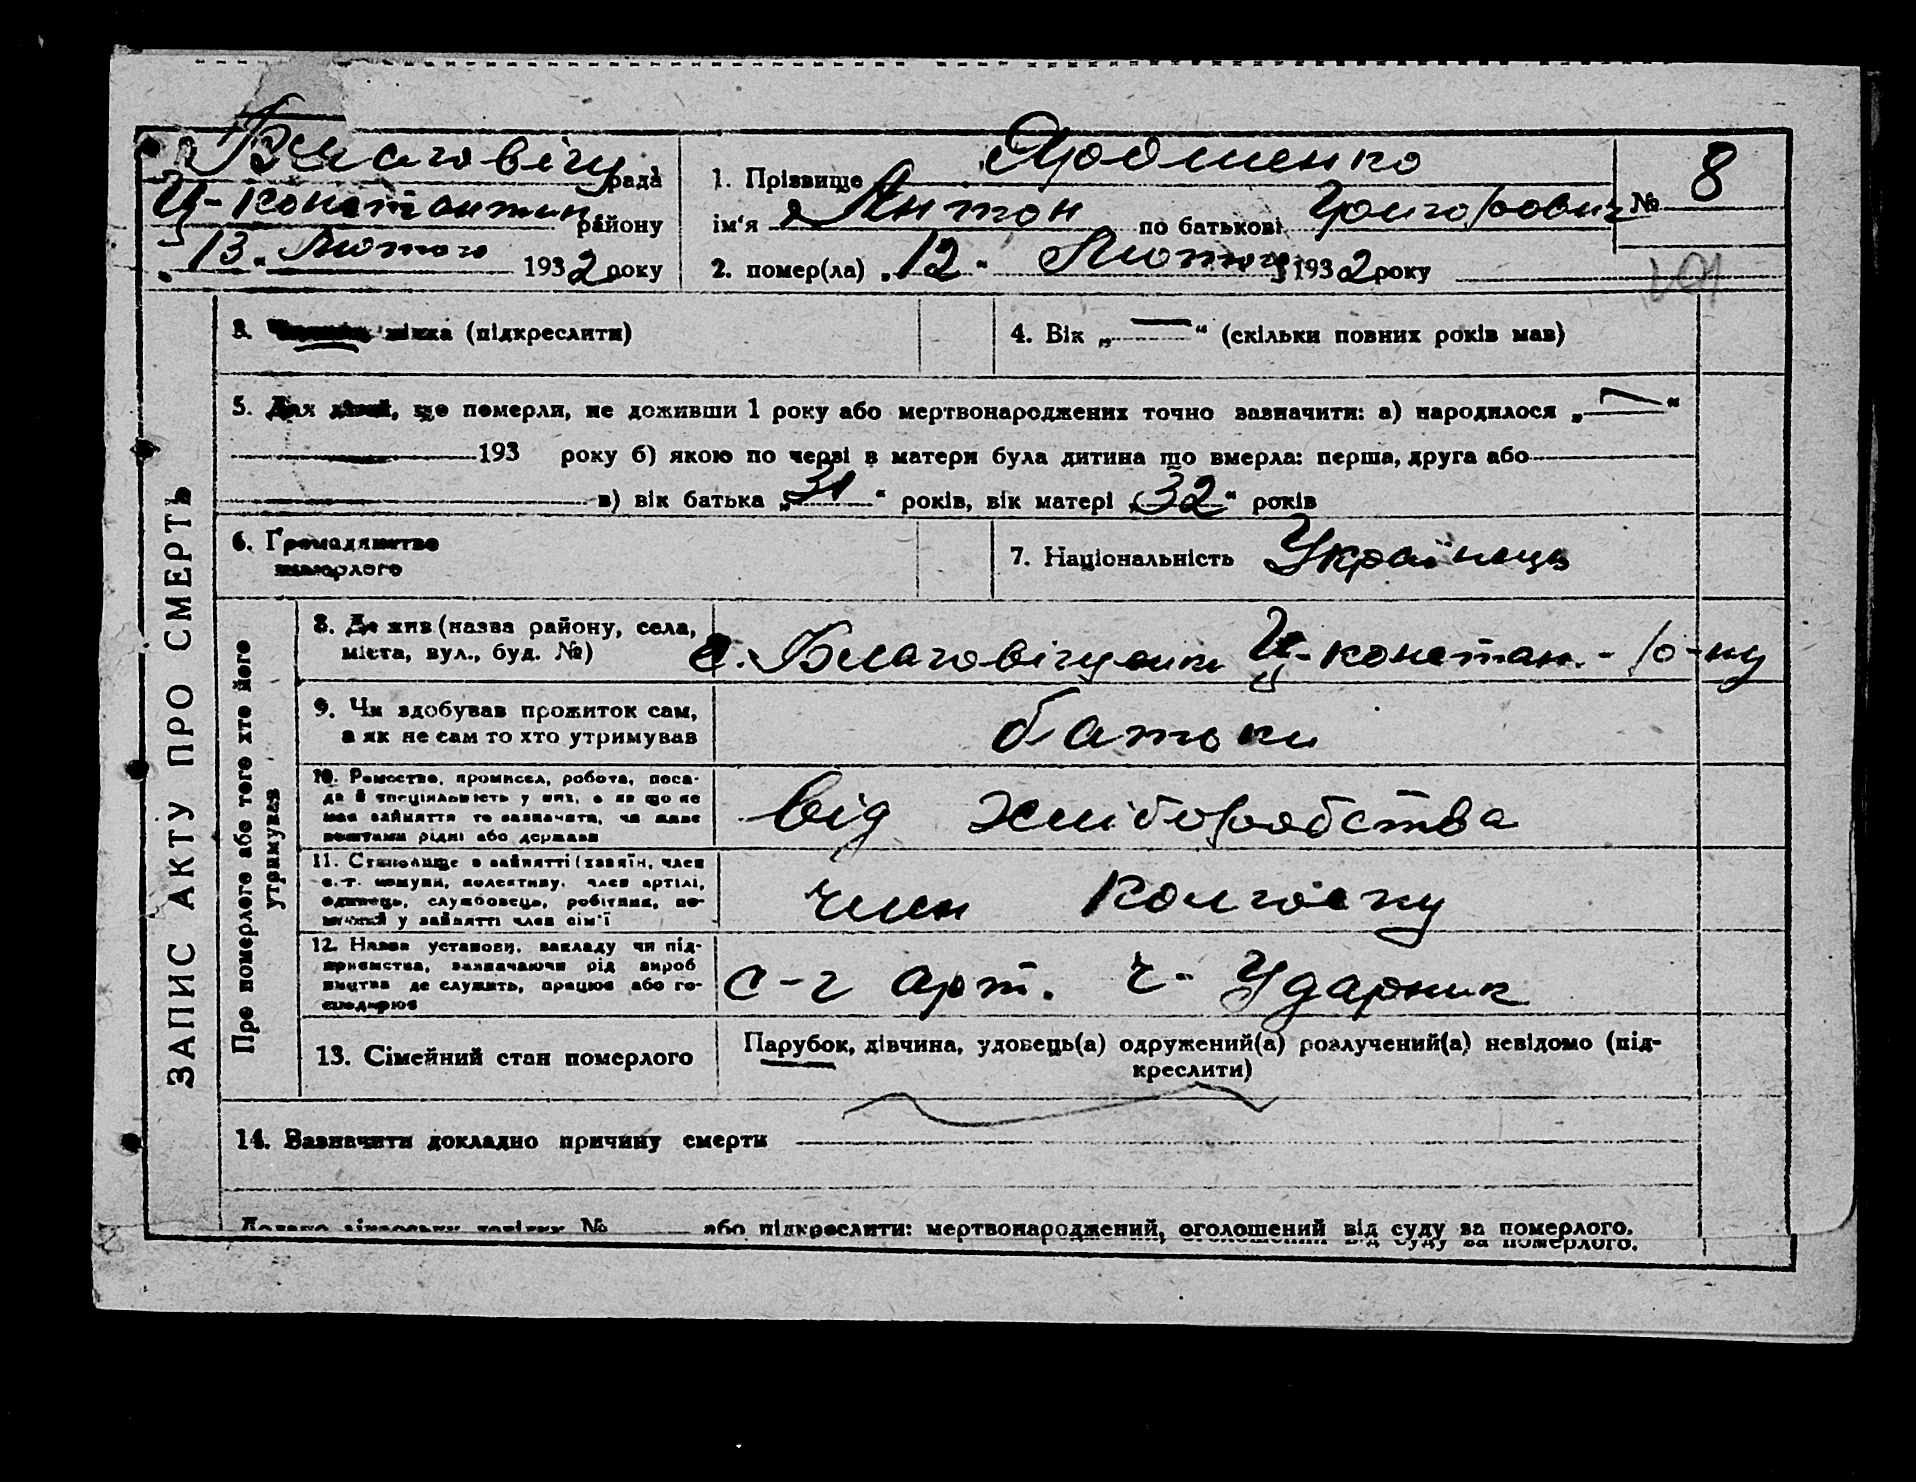 Благовіщ рада
Ц-Константин. району
„13„ Лютого 1932 року
1. Прізвище Ярошенко
ім‘я Антон по батькові Григорович
№ 8
2. помер(ла) „12“ Лютого 1932 року
101
3. жінка (підкреслити)
4. Вік „—“ (скільки повних років мав)
5. Для дітей, що померли, не доживши 1 року або мертвонароджених точно зазначити: а) народилося „—“
193 року б) якою по черзі в матери була дитина що вмерла: перша, друга або
в) вік батька „31“ років, вік матері „32“ років
6. Громадянство
померлого
7. Національність Українець
ЗАПИС АКТУ ПРО СМЕРТЬ
Про померлого або того хто його
утримував
8. Де жив (назва району, села,
міста, вул., буд. №)
с. Благовіщенк Ц-констан.-р-ну
9. Чи здобував прожиток сам,
а як не сам то хто утримував
батьки
10. Ремество, промисел, робота, поса-
да й спеціяльність у них, а як що не
мав зайняття то зазначити, чи жиє
коштами рідні або держави
від хліборобства
11. Становище в зайнятті (хазяїн, член
с.-г. комуни, колективу, член артілі,
одинець, службовець, робітник, по-
мічний у зайнятті член сім‘ї
член колгоспу
12. Назва установи, закладу чи під-
приємства, зазначаючи рід вироб
ництва де служить, працює або го-
сподарює
с-г арт. ч- Ударник
13. Сімейний стан померлого
Парубок, дівчина, удовець(а) одружений(а) розлучений(а) невідомо (під-
креслити)
14. Зазначити докладно причину смерти
Додано лікарську довідку № або підкреслити: мертвонароджений, оголошений від суду за померлого.